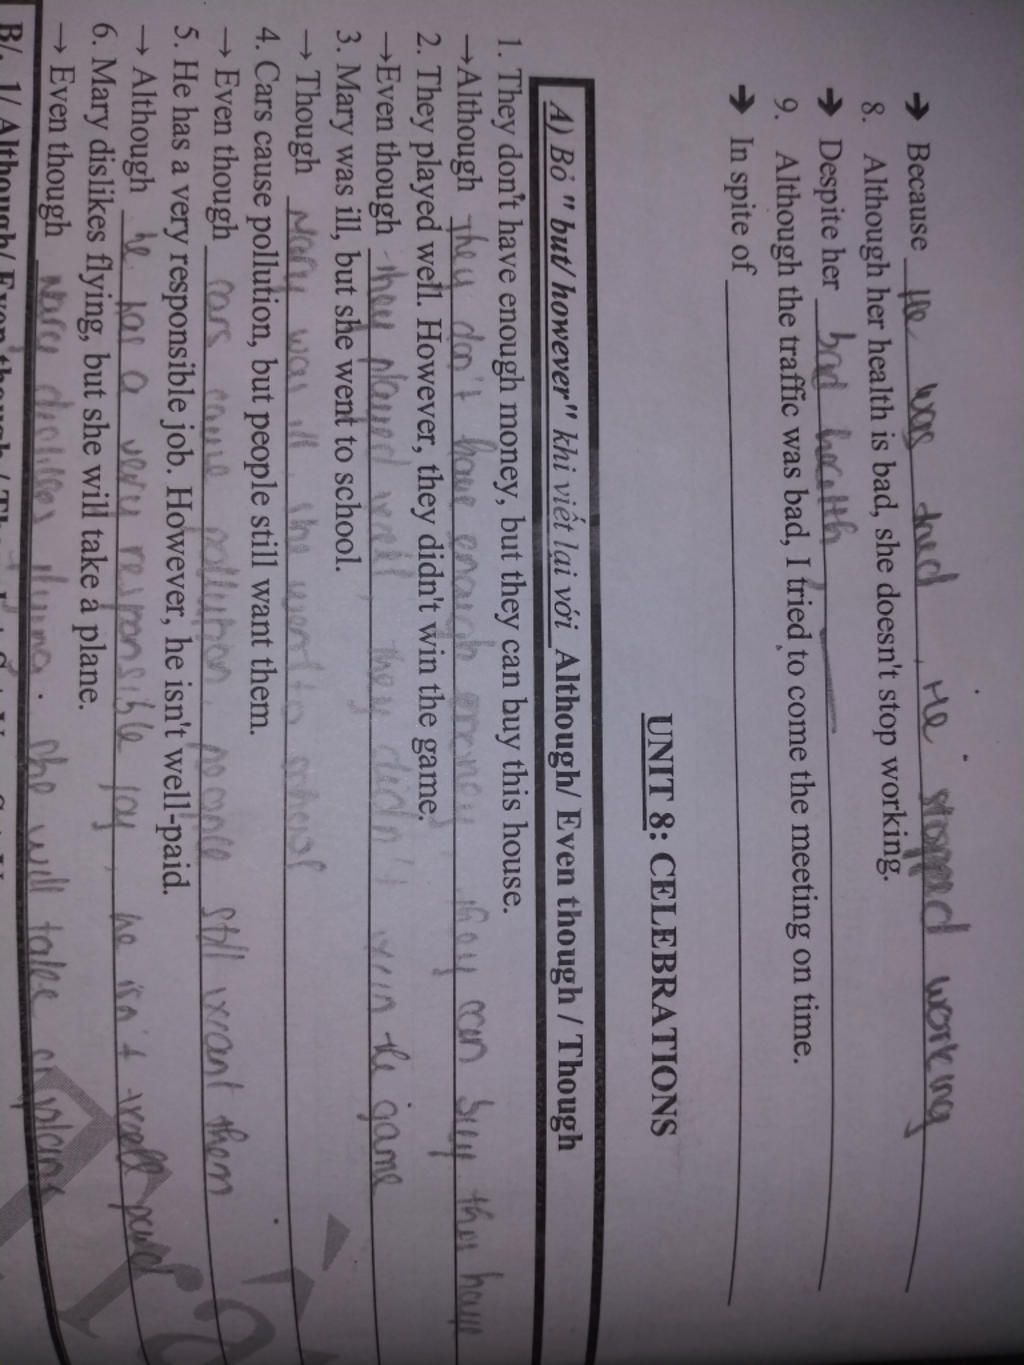 ➔ Because He was tired, He stopped working
8. Although her health is bad, she doesn't stop working.
➔ Despite her bad health
9. Although the traffic was bad, I tried to come the meeting on time.
➔ In spite of
UNIT 8: CELEBRATIONS
A) Bỏ "but/ however" khi viết lại với Although/ Even though / Though
1. They don't have enough money, but they can buy this house.
→Although They don't have enough money, they can buy this
2. They played well. However, they didn't win the game.
→Even though they played well, they didn't win the game
3. Mary was ill, but she went to school.
→ Though Mary was ill, she went to school
4. Cars cause pollution, but people still want them.
→ Even though cars cause pollution, people still want them
5. He has a very responsible job. However, he isn't well-paid.
→ Although he has a very responsible joy, he isn't well
6. Mary dislikes flying, but she will take a plane.
→ Even though Mary dislikes flying, she will take a plane
B/. 1/ Although/ Even though /